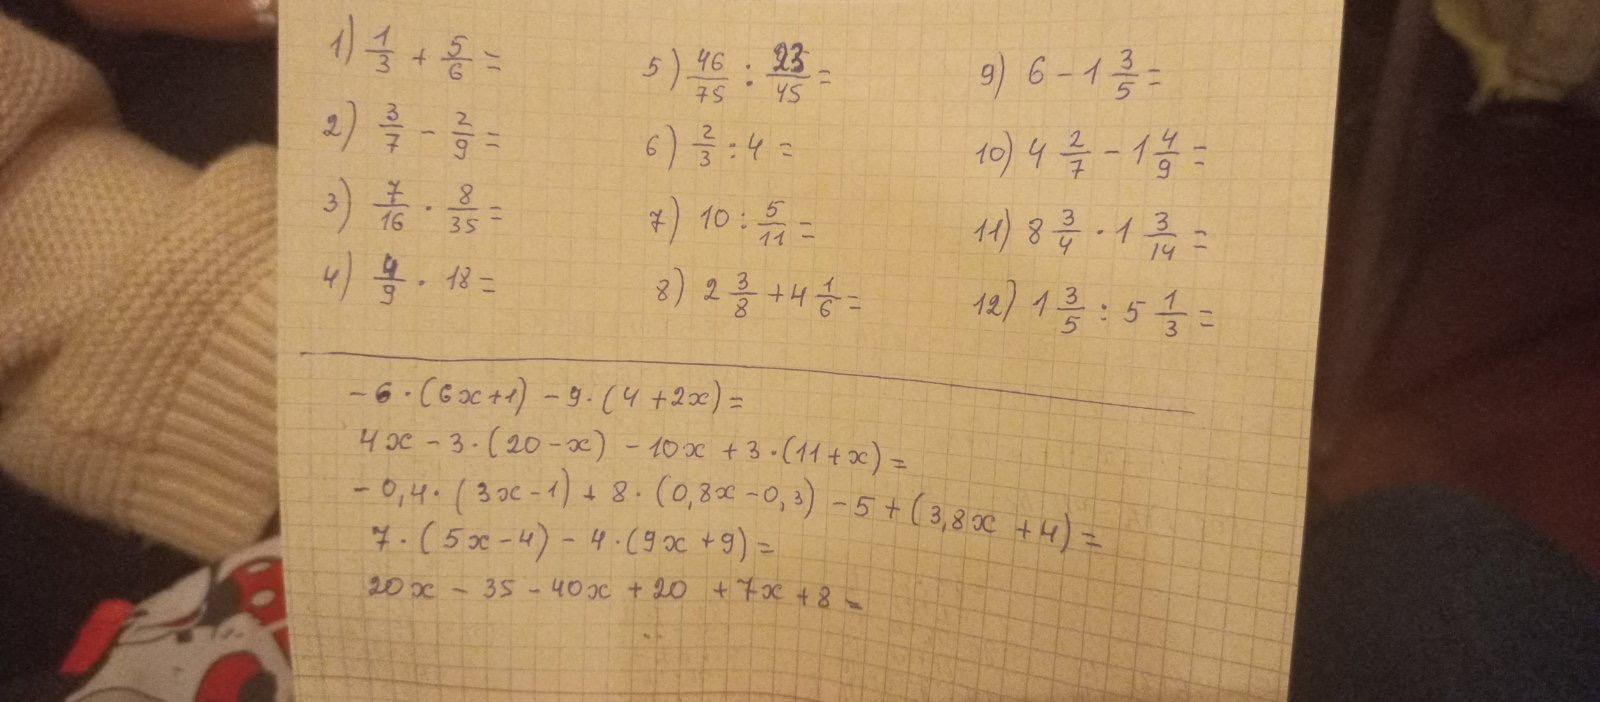 1) 1/3 + 5/6 =
2) 3/7 - 2/9 =
3) 7/16 · 8/35 =
4) 4/9 · 18 =
5) 46/75 : 23/45 =
6) 2/3 : 4 =
7) 10 : 5/11 =
8) 2 3/8 + 4 1/6 =
9) 6 - 1 3/5 =
10) 4 2/7 - 1 4/9 =
11) 8 3/4 · 1 3/14 =
12) 1 3/5 : 5 1/3 =
-6·(6x+1) - 9·(4+2x) =
4x - 3·(20-x) - 10x + 3·(11+x) =
-0,4·(3x-1) + 8·(0,8x-0,3) - 5 + (3,8x+4) =
7·(5x-4) - 4·(9x+9) =
20x - 35 - 40x + 20 + 7x + 8 =